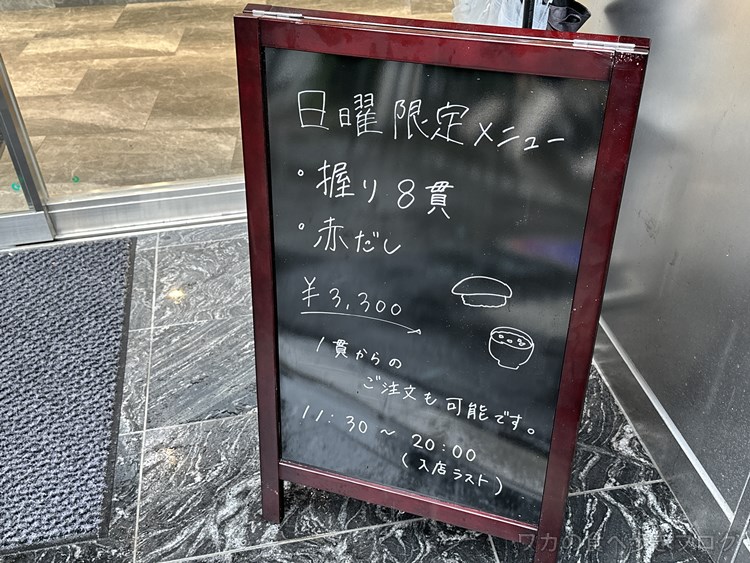 日曜限定メニュー
・握り8貫
・赤だし
¥3,300
1貫からの
ご注文も可能です。
11:30～20:00
(入店ラスト)